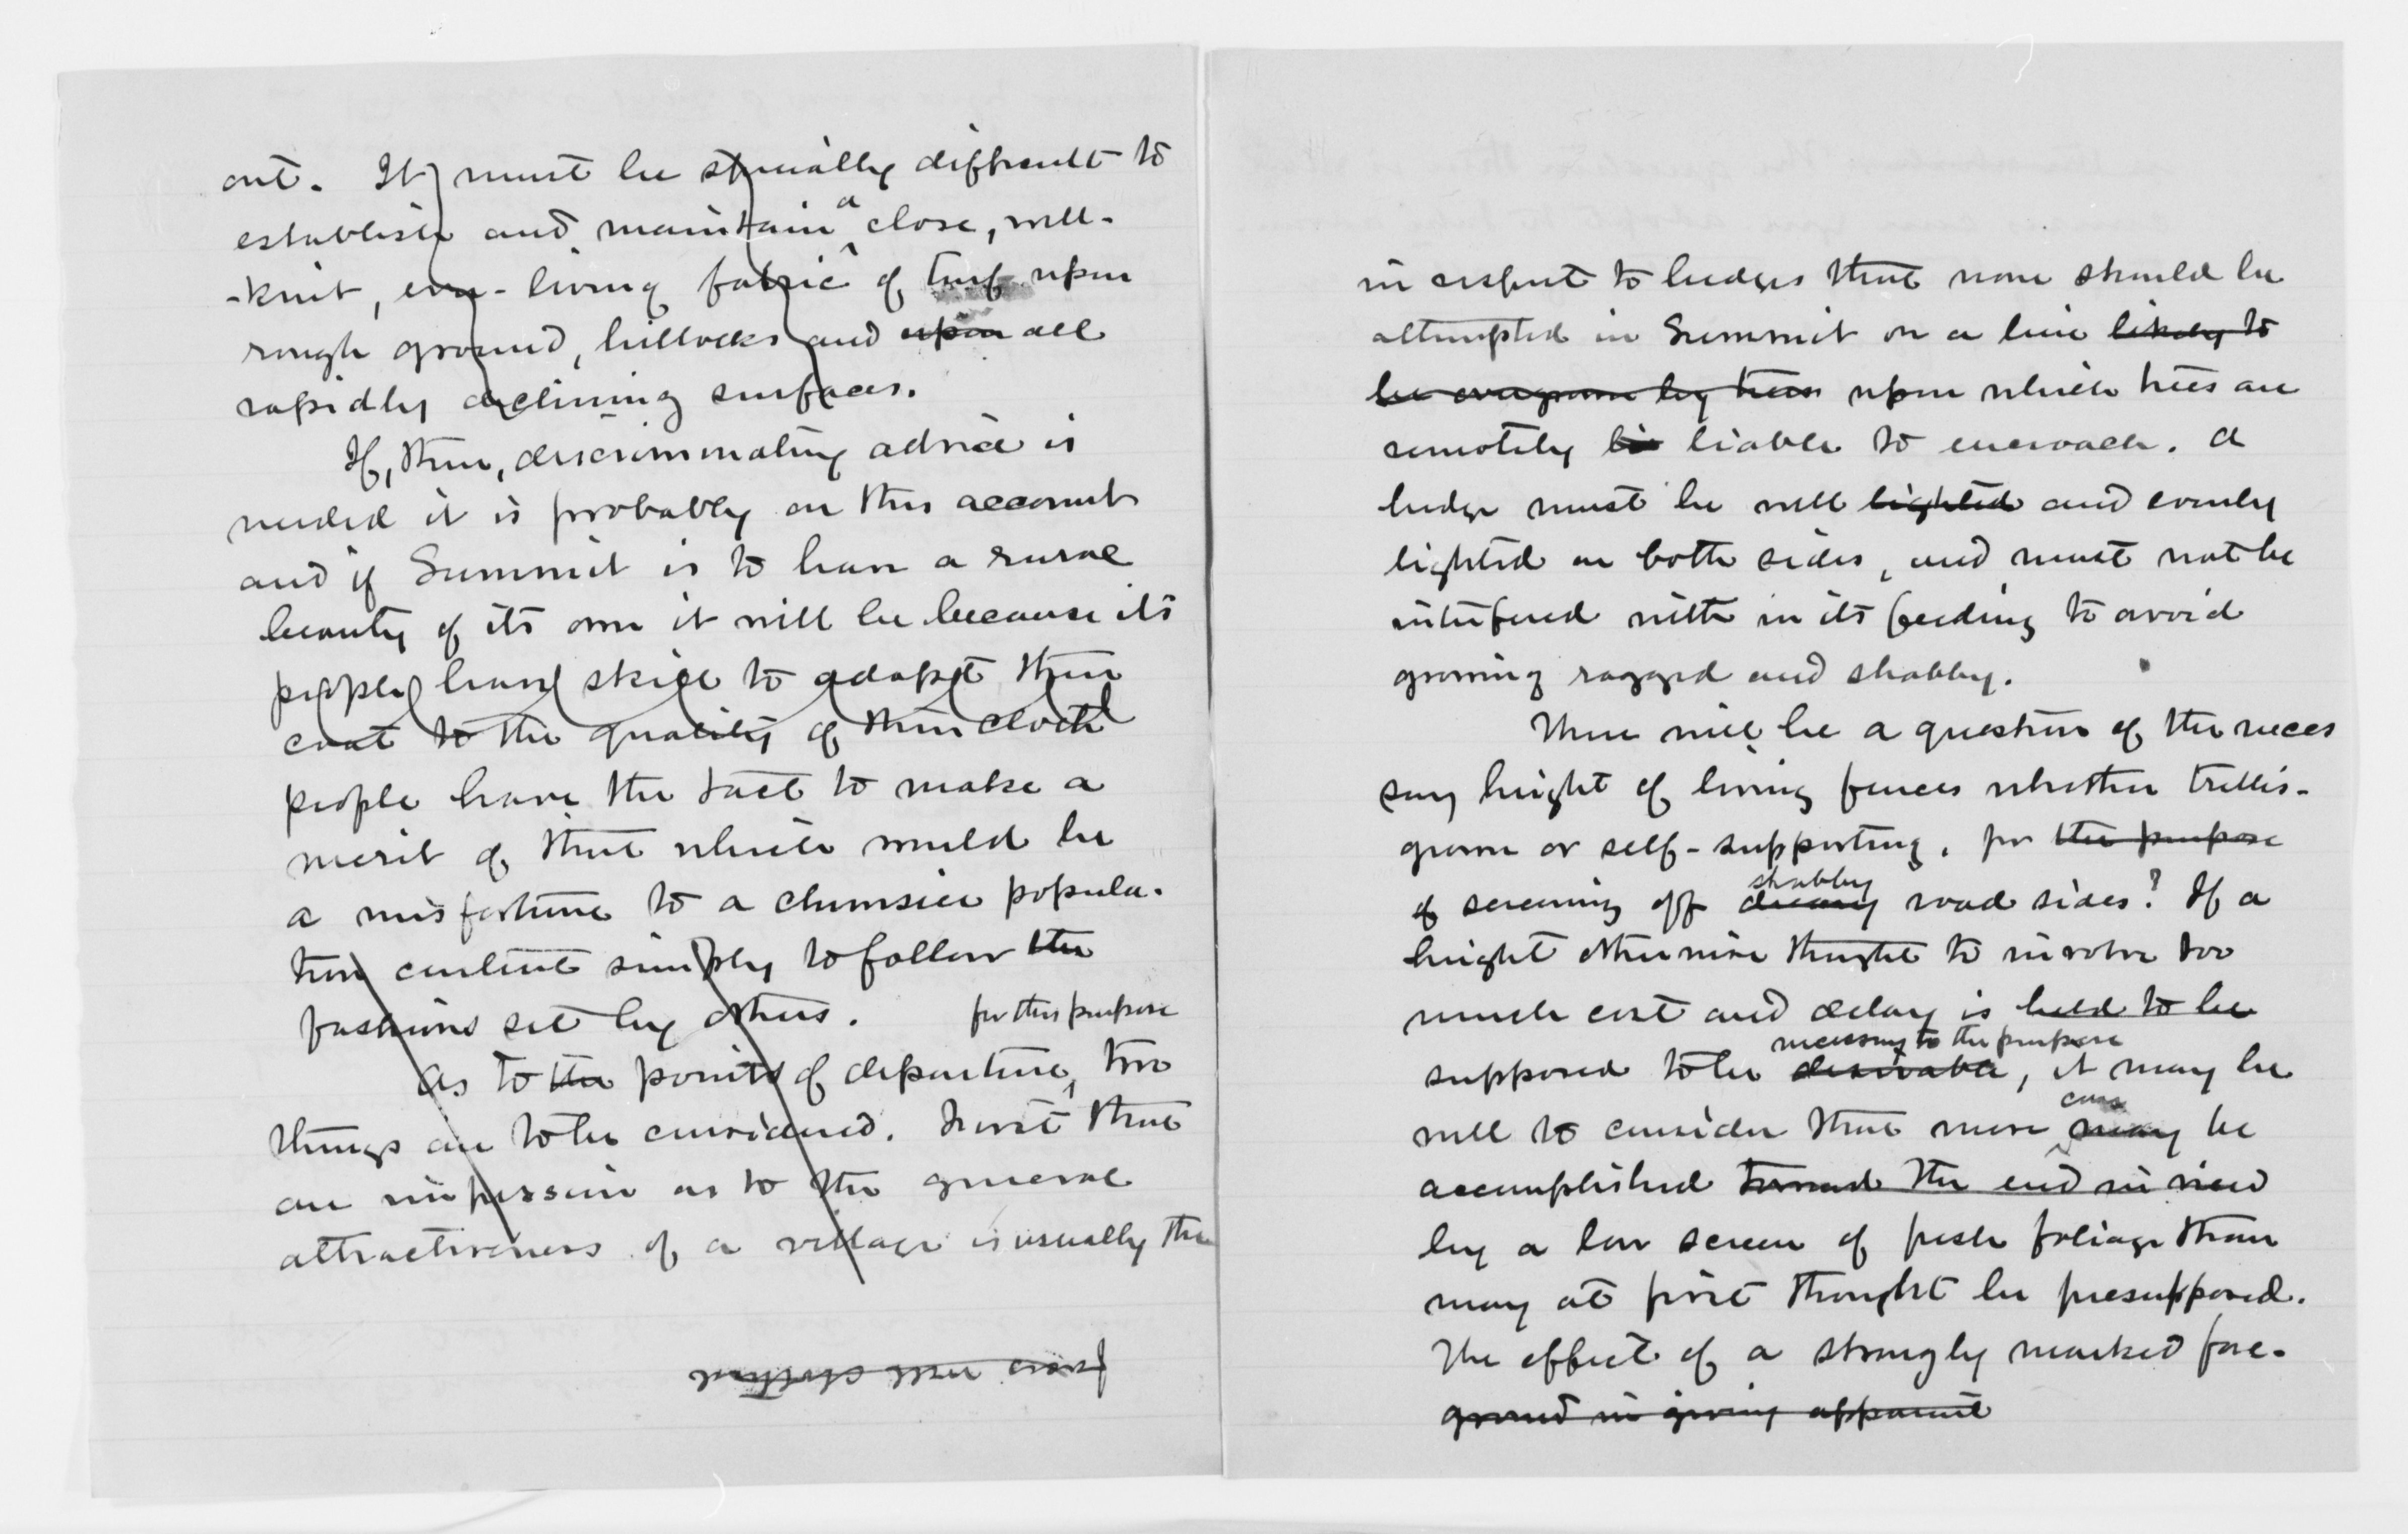 out. It must be specially difficult to
establish and maintain a close, well-
-knit, ever-living fabric of turf upon
rough ground, hillocks and upon all
rapidly declining surfaces.
If, then, discriminating advice is
needed it is probably on this account
and if Summit is to have a rural
beauty of its own it will be because its
people have skill to adapt their
coat to the quality of their cloth
people have the tact to make a
merit of that which would be
a misfortune to a clumsier popula-
tion content simply to follow the
fashions set by others.
for this purpose
As to the points of departure, two
things are to be considered. First that
an impression as to the general
attractiveness of a village is usually the
from well clothed
in respect to hedges that none should be
attempted in Summit on a line likely to
be overgrown by trees upon which trees are
remotely li liable to encroach. A
hedge must be well lighted and evenly
lighted on both sides, and must not be
interfered with in its feeding to avoid
growing ragged and shabby.
There will be a question of the neces
sary height of living fences whether trellis-
grown or self-supporting, for the purpose
shabby
of screening off dreary road sides? If a
height otherwise thought to involve too
much cost and delay is held to be
necessary to the purpose
supposed to be desirable, it may be
can
well to consider that more may be
accomplished toward the end in view
by a low screen of fresh foliage than
may at first thought be presupposed.
The effect of a strongly marked fore-
ground in giving apparent